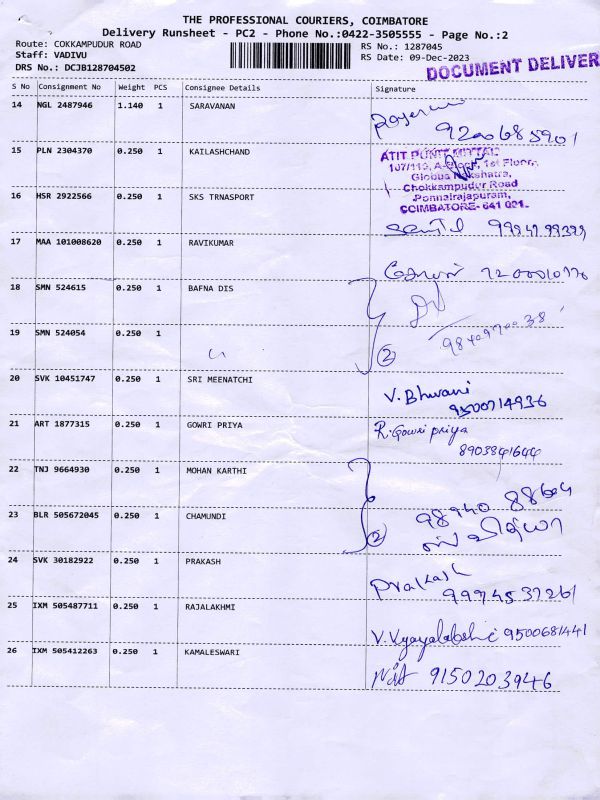 THE PROFESSIONAL COURIERS, COIMBATORE
Delivery Runsheet - PC2 - Phone No.:0422-3505555 - Page No.:2
Route: COKKAMPUDUR ROAD
Staff: VADIVU
DRS No.: DCJB128704502
RS No.: 1287045
RS Date: 09-Dec-2023
DOCUMENT DELIVER
S No Consignment No Weight PCS Consignee Details Signature
14 NGL 2487946 1.140 1 SARAVANAN
9200685901
15 PLN 2304370 0.250 1 KAILASHCHAND
ATIT PUNIT MITTAL
107/116, A-Block, 1st Floor,
Globus Nakshatra,
Chokkampudur Road
Ponnairajapuram,
COIMBATORE- 641 001.
16 HSR 2922566 0.250 1 SKS TRNASPORT
17 MAA 101008620 0.250 1 RAVIKUMAR
18 SMN 524615 0.250 1 BAFNA DIS
19 SMN 524054 0.250 1
2
20 SVK 10451747 0.250 1 SRI MEENATCHI
V. Bhuvani
9500714936
21 ART 1877315 0.250 1 GOWRI PRIYA
R. Gowri priya
8903841644
22 TNJ 9664930 0.250 1 MOHAN KARTHI
98940 88604
23 BLR 505672045 0.250 1 CHAMUNDI
2
24 SVK 30182922 0.250 1 PRAKASH
Prakash
9994537261
25 IXM 505487711 0.250 1 RAJALAKHMI
V. Vyayalakshi 9500681441
26 IXM 505412263 0.250 1 KAMALESWARI
9150203946